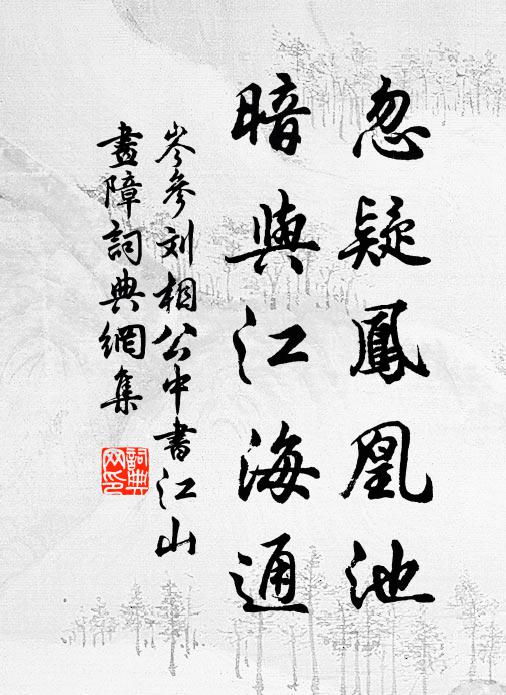 忽疑鳳凰池
暗與江海通
岑參刘相公中書江山
畫障詞典網集
詞典网印